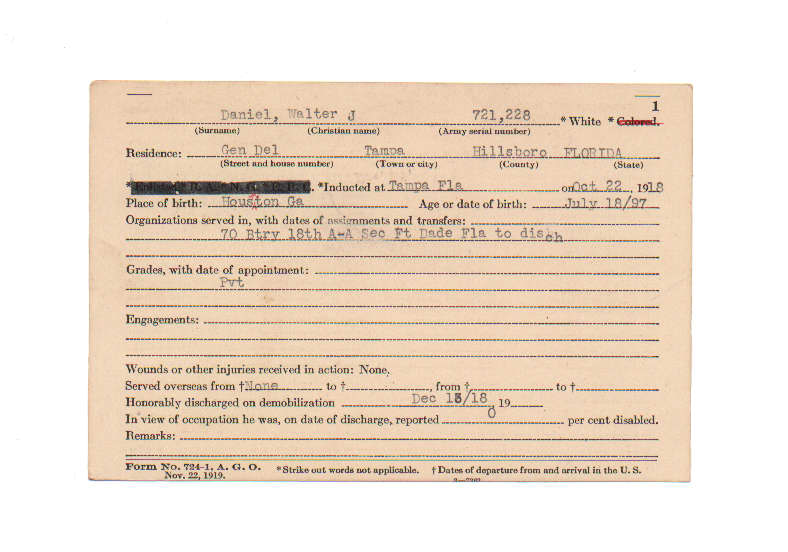 1
Daniel, Walter J 721,228 * White * Colored.
(Surname) (Christian name) (Army serial number)
Residence: Gen Del Tampa Hillsboro FLORIDA
(Street and house number) (Town or city) (County) (State)
* *Inducted at Tampa Fla on Oct 22, 1918
Place of birth: Houston Ga Age or date of birth: July 18/97
Organizations served in, with dates of assignments and transfers:
70 Btry 18th A-A Sec Ft Dade Fla to disch
Grades, with date of appointment:
Pvt
Engagements:
Wounds or other injuries received in action: None.
Served overseas from † None to †, from † to †
Honorably discharged on demobilization Dec /18, 19
In view of occupation he was, on date of discharge, reported 0 per cent disabled.
Remarks:
Form No. 724-1, A. G. O. *Strike out words not applicable. † Dates of departure from and arrival in the U. S.
Nov. 22, 1919.